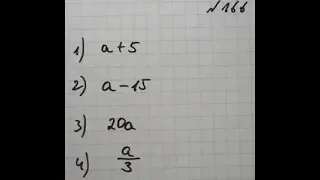 №166
1) a+5
2) a-15
3) 20a
4) a/3